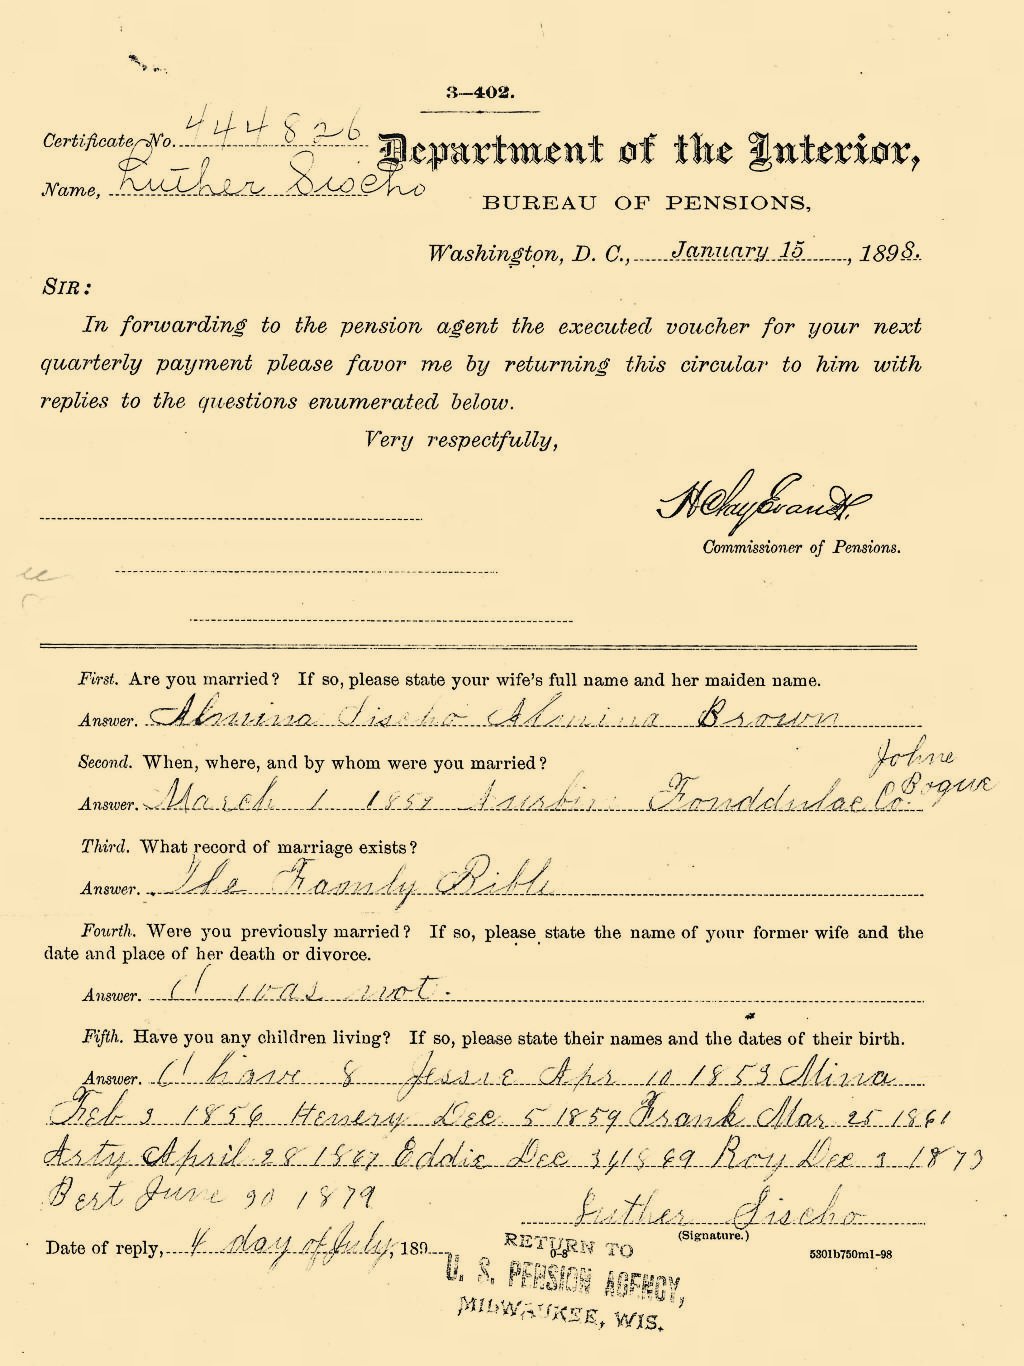 3—402.
Certificate No. 444826
Name, Luther Sischo
Department of the Interior,
BUREAU OF PENSIONS,
Washington, D. C., January 15, 1898.
SIR:
In forwarding to the pension agent the executed voucher for your next
quarterly payment please favor me by returning this circular to him with
replies to the questions enumerated below.
Very respectfully,
H Clay Evans
Commissioner of Pensions.
First. Are you married? If so, please state your wife's full name and her maiden name.
Answer. Almina Sischo Almina Brown
Second. When, where, and by whom were you married?
Johne
Bogue
Answer. March 1 Fonddulac Co.
Third. What record of marriage exists?
Answer. The Faomly Bible
Fourth. Were you previously married? If so, please state the name of your former wife and the
date and place of her death or divorce.
Answer. I was not.
Fifth. Have you any children living? If so, please state their names and the dates of their birth.
Answer. I have 8 Jessie Apr 10 1853 Mina
Feb 3 1856 Henery Dec 5 1859 Frank Mar 25 1861
Arty April 28 1867 Eddie Dec 1869 Roy Dec 3 1873
Bert June 30 1879
Luther Sischo
(Signature.)
Date of reply, 4 day of July, 189
0-8
5301b750m1-98
RETURN TO
U. S. PENSION AGENCY,
MILWAUKEE, WIS.